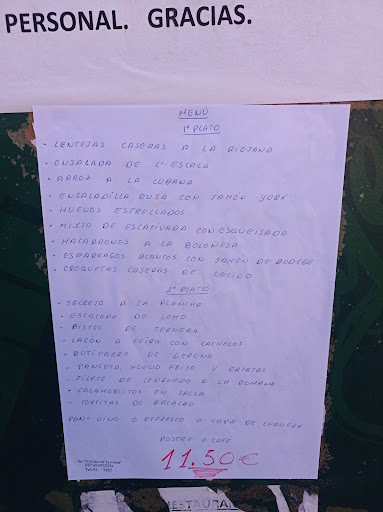 PERSONAL. GRACIAS.
MENÚ
1º PLATO
- LENTEJAS CASERAS A LA RIOJANA
- ENSALADA DE L'ESCALA
- ARROZ A LA CUBANA
- ENSALADILLA RUSA CON JAMÓN YORK
- HUEVOS ESTRELLADOS
- MIJTO DE ESCALIVADA CON ESQUEIXADA
- MACARRONES A LA BOLOÑESA
- ESPARRAGOS BLANCOS CON JAMÓN DE BODEGA
- CROQUETAS CASERAS DE COCIDO
2º PLATO
- SECRETO A LA PLANCHA
- ESCALOPA DE LOMO
- BISTEC DE TERNERA
- LACON A FEIRA CON CACHELOS
- BUTIFARRA DE GERONA
- PANCETA, HUEVO FRITO Y PATATAS
- FILETE DE LENGUADO A LA ROMANA
- CALAMARCITOS EN SALSA
- TORTITAS DE BACALAO
PAN - VINO O REFRESCO O COPA DE CERVEZA
POSTRE O CAFÉ
11.50€
RESTAURAN